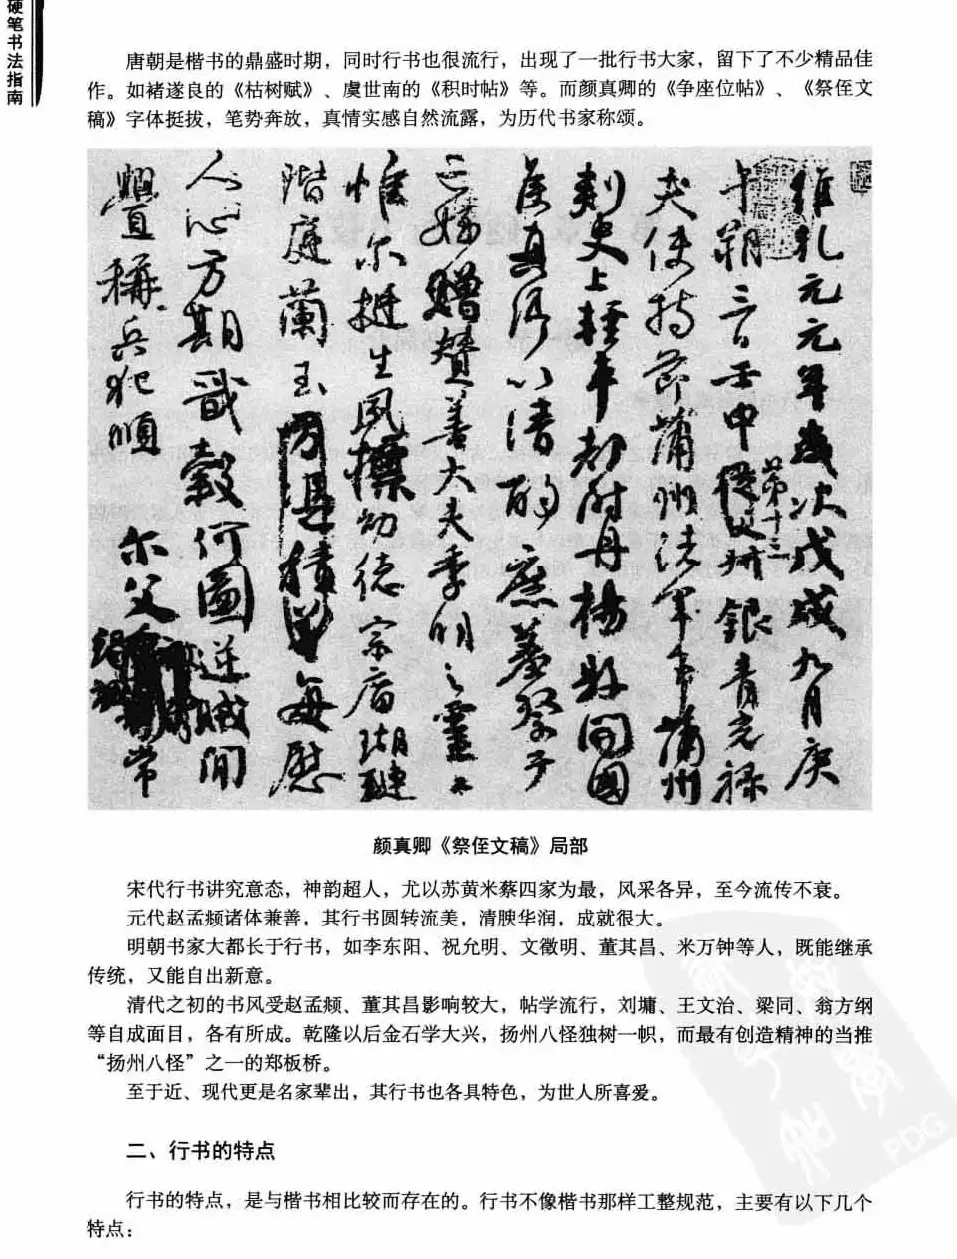 硬笔书法指南
唐朝是楷书的鼎盛时期，同时行书也很流行，出现了一批行书大家，留下了不少精品佳
作。如褚遂良的《枯树赋》、虞世南的《积时帖》等。而颜真卿的《争座位帖》、《祭侄文
稿》字体挺拔，笔势奔放，真情实感自然流露，为历代书家称颂。
維乾元元年歲次戊戌九月庚
午朔三日壬申第十三從父叔銀青光祿
夫使持節蒲州諸軍事蒲州
刺史上輕車都尉丹楊縣開國
侯真卿以清酌庶羞祭于
亡姪贈贊善大夫季明之靈曰
惟尔挺生夙標幼德宗廟瑚璉
階庭蘭玉每慰
人心方期戩穀何圖逆賊閒
釁稱兵犯順 尔父常
颜真卿《祭侄文稿》局部
宋代行书讲究意态，神韵超人，尤以苏黄米蔡四家为最，风采各异，至今流传不衰。
元代赵孟頫诸体兼善，其行书圆转流美，清腴华润，成就很大。
明朝书家大都长于行书，如李东阳、祝允明、文徵明、董其昌、米万钟等人，既能继承
传统，又能自出新意。
清代之初的书风受赵孟頫、董其昌影响较大，帖学流行，刘墉、王文治、梁同、翁方纲
等自成面目，各有所成。乾隆以后金石学大兴，扬州八怪独树一帜，而最有创造精神的当推
“扬州八怪”之一的郑板桥。
至于近、现代更是名家辈出，其行书也各具特色，为世人所喜爱。
二、行书的特点
行书的特点，是与楷书相比较而存在的。行书不像楷书那样工整规范，主要有以下几个
特点：
PDG